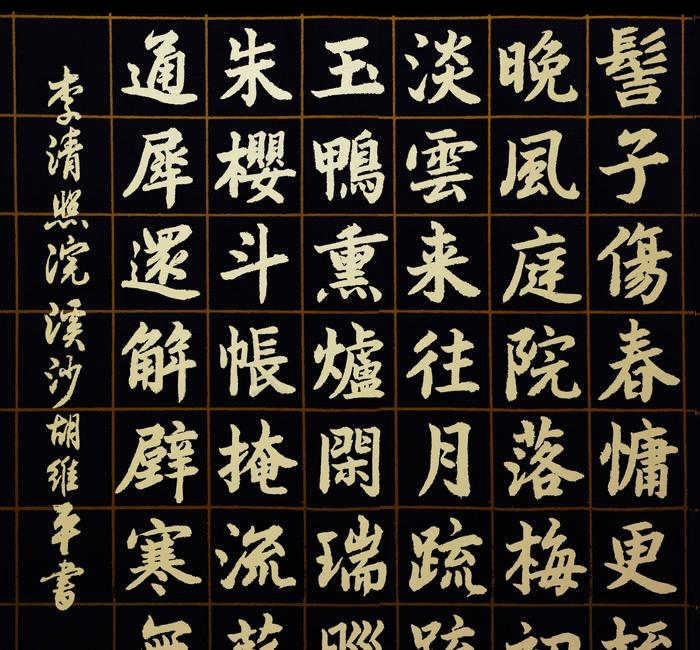 髻子傷春慵更梳
晚風庭院落梅初
淡雲来往月疏疏
玉鴨熏爐閑瑞腦
朱櫻斗帳掩流蘇
通犀還解辟寒無
李清照浣溪沙胡維平書